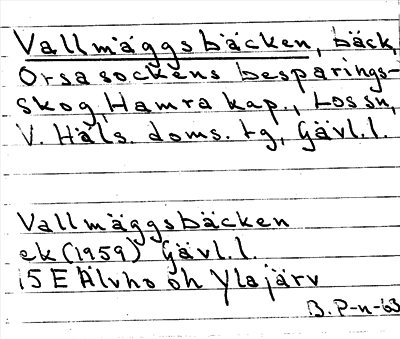 Vallmäggsbäcken, bäck,
Orsa sockens besparings-
skog, Hamra kap., Lossn,
V. Häls. doms. tg, Gävl.l.
Vallmäggsbäcken
ek (1959) Gävl.l.
15E Älvho öh Ylajärv
B. P-n-63